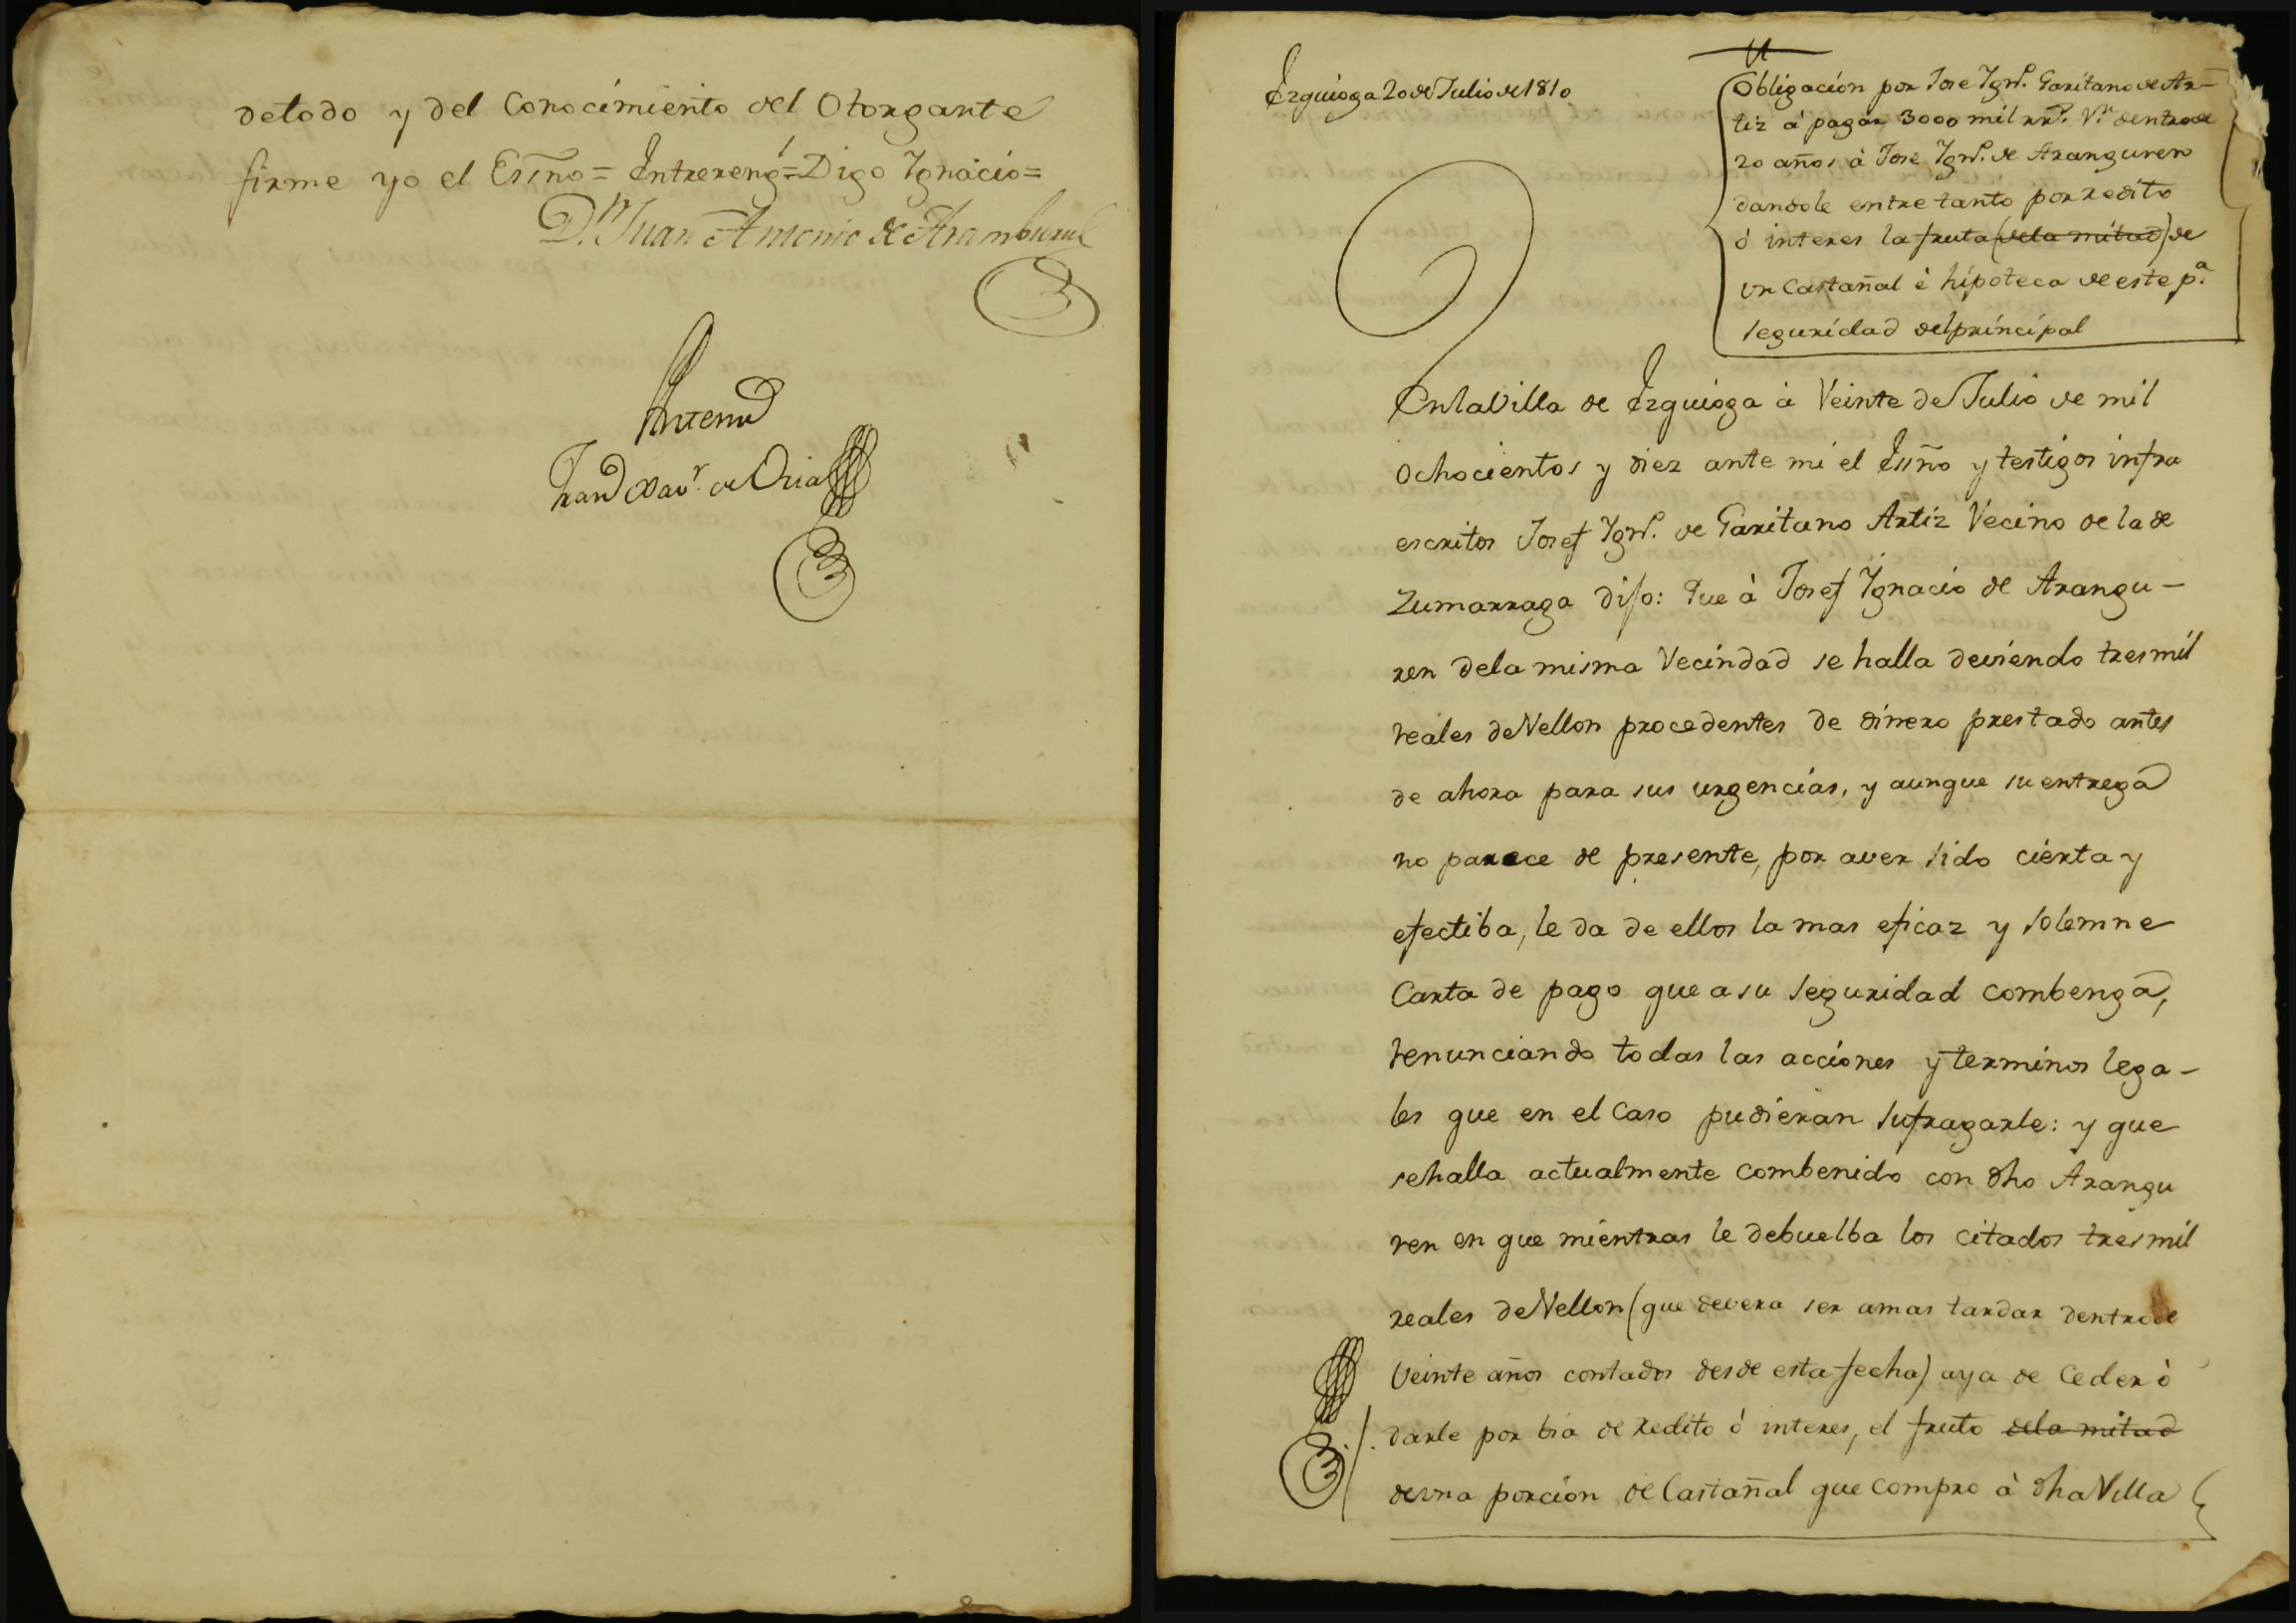 detodo y del Conocimiento del Otorgante
firme yo el Essno = Entrereng.s = Digo Ygnacio =
D.n Juan Antonio de Aramburu
Antemi
Fran.co Xav.r de Oria
Ezquioga 20 de Julio de 1810
Obligacion por Jose Ygn.o Garitano de Ar-
tiz á pagar 3000 mil rr.s V.n dentro de
20 años à José Ygn.o de Aranguren
dandole entre tanto por redito
ò interes la fruta (dela mitad) de
un Castañal è hipoteca de este p.a
seguridad del principal
EnlaVilla de Ezquioga à Veinte de Julio de mil
ochocientos y diez ante mi el Essño y testigos infra
escritos Josef Ygn.o de Garitano Artiz Vecino de la de
Zumarraga dijo: Que à Josef Ygnacio de Arangu-
ren dela misma Vecindad se halla deviendo tresmil
reales deVellon procedentes de dinero prestado antes
de ahora para sus urgencias, y aunque su entrega
no parece de presente, por aver sido cierta y
efectiba, le da de ellos la mas eficaz y solemne
Carta de pago que a su seguridad combenga,
renunciando todas las acciones y terminos lega-
les que en el Caso pudieran sufragarle: y que
sehalla actualmente combenido con dho Arangu
ren en que mientras le debuelba los citados tresmil
reales deVellon (que devera ser amas tardar dentro de
Veinte años contados desde esta fecha) aya de Ceder ò
darle por bia de redito ò interes, el fruto dela mitad
deuna porcion de Castañal que compro à dha Villa